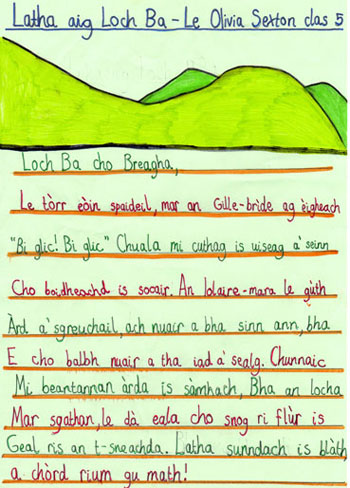 Latha aig Loch Ba - Le Olivia Sexton clas 5
Loch Ba cho Breagha,
Le tòrr eòin spaideil, mar an Gille-brìde ag èigheach
"Bi glic! Bi glic" Chuala mi cuthag is uiseag a' seinn
Cho boidheachd is socair. An Iolaire-mara le gùth
Àrd a' sgreuchail, ach nuair a bha sinn ann, bha
E cho balbh nuair a tha iad a' sealg. Chunnaic
Mi beantannan àrda is sàmhach, Bha an locha
Mar sgathan, le dà eala cho snog ri flùr is
Geal ris an t-sneachda. Latha sunndach is blàth
a chòrd rium gu math!